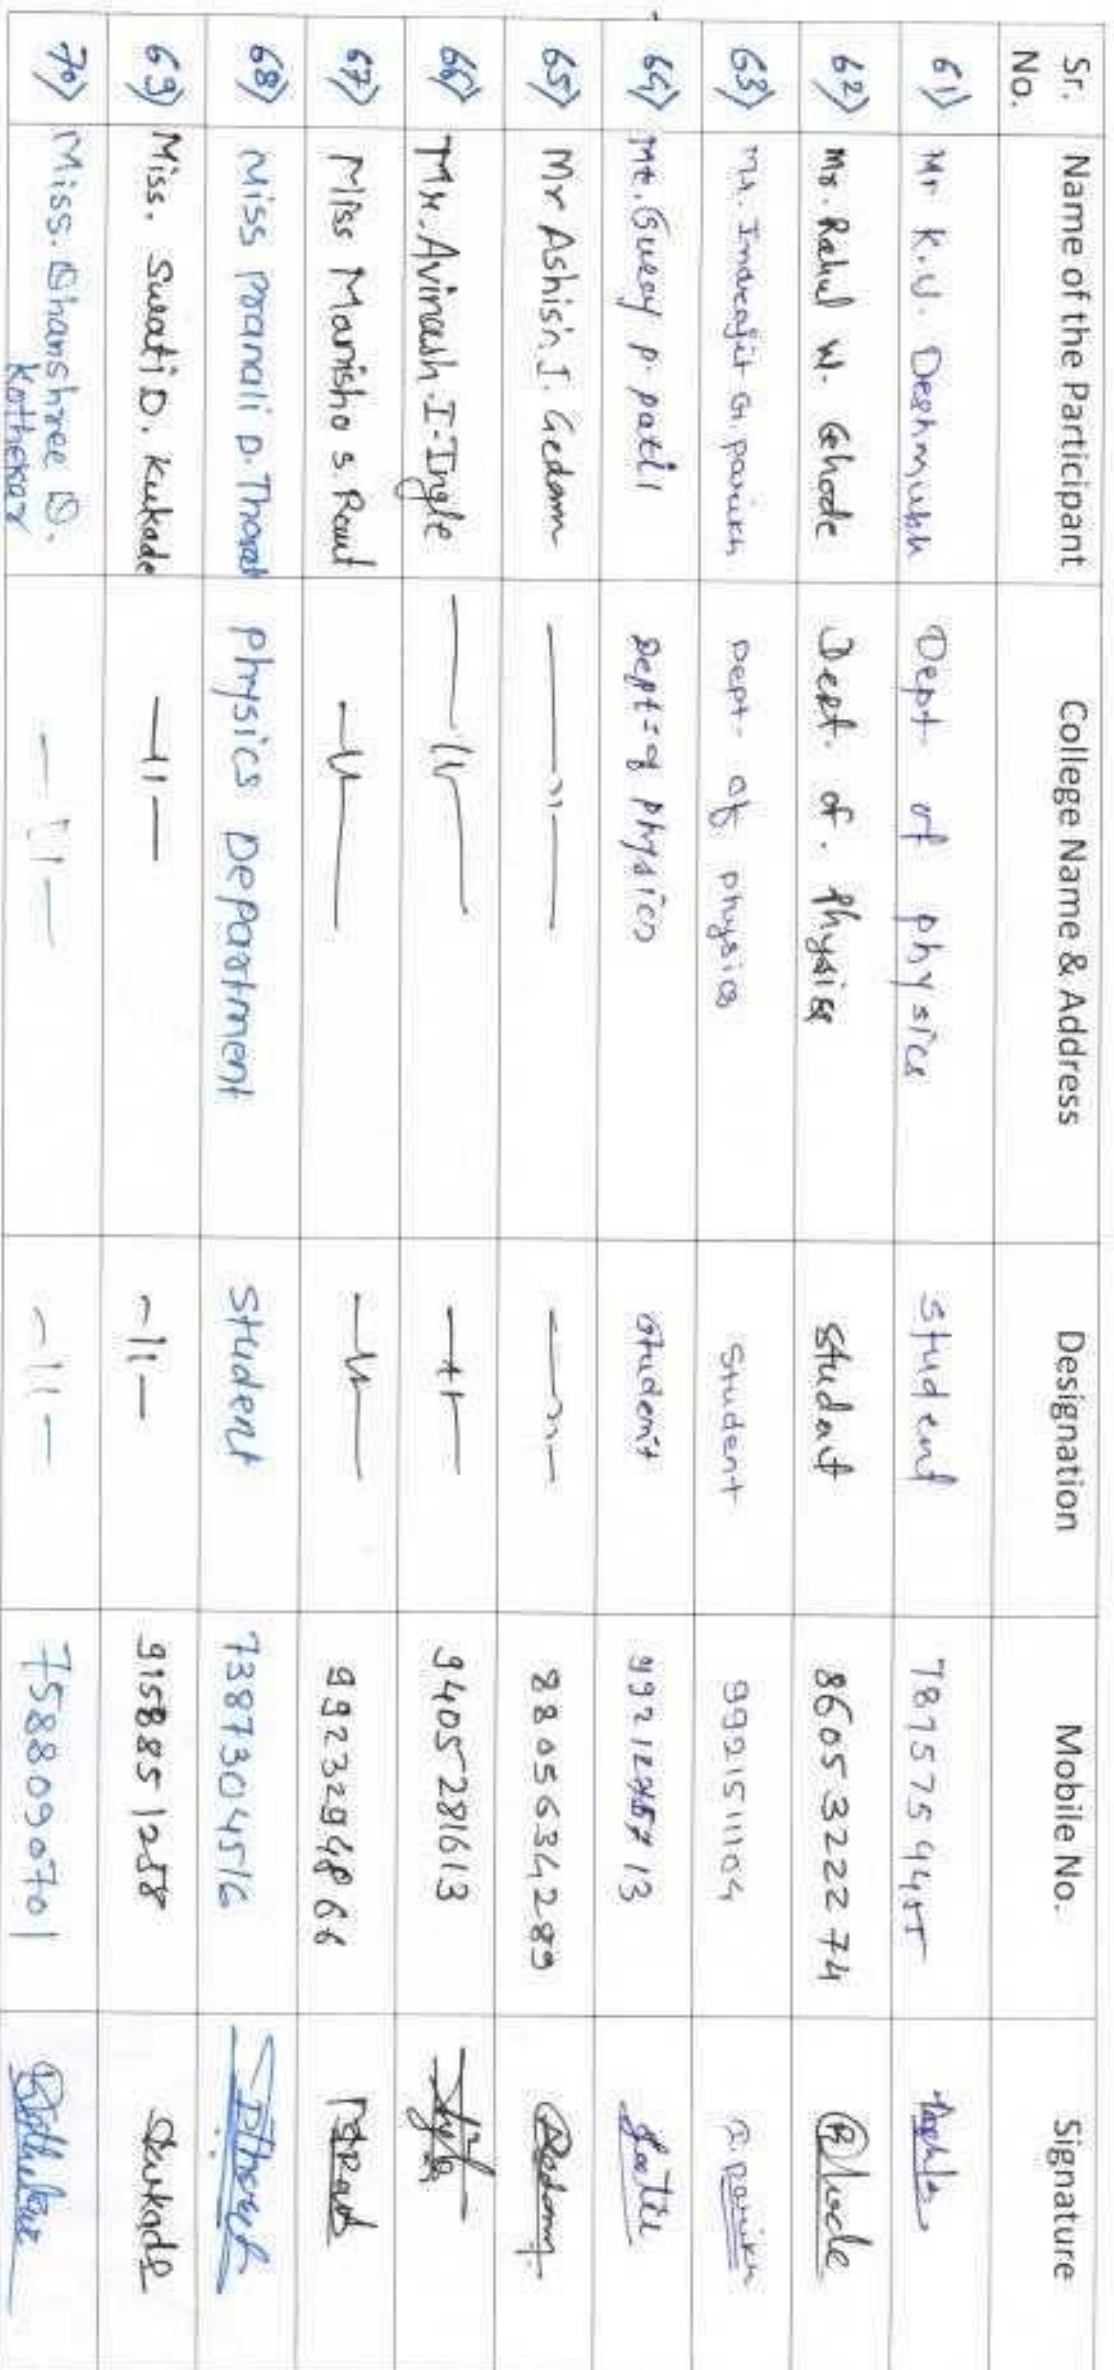 Sr. No. Name of the Participant College Name & Address Designation Mobile No. Signature
61) Mr K.U. Deshmukh Dept. of physics student
62) Mr. Rahul W. Ghode Dept. of. Physics student 8605322274
63) Mr. Indrajit G. parikh Dept. of physics student 9921511104 I. parikh
64) Mr. p. patil Dept. of physics student
65) Mr Ashish. I. Gedam —〃— —〃— 8805634289
66) Mr. Avinash. I. Ingle —〃— —〃— 9405281613
67) Miss Manisha S. Raut —〃— —〃— 9923294866
68) Miss Pranali D. Thorat physics Department student 7387304516
69) Miss. Swati D. Kukade —〃— —〃— 9158851258
70) Miss. Dhanshree D. Kathekar —〃— —〃— 7588090701